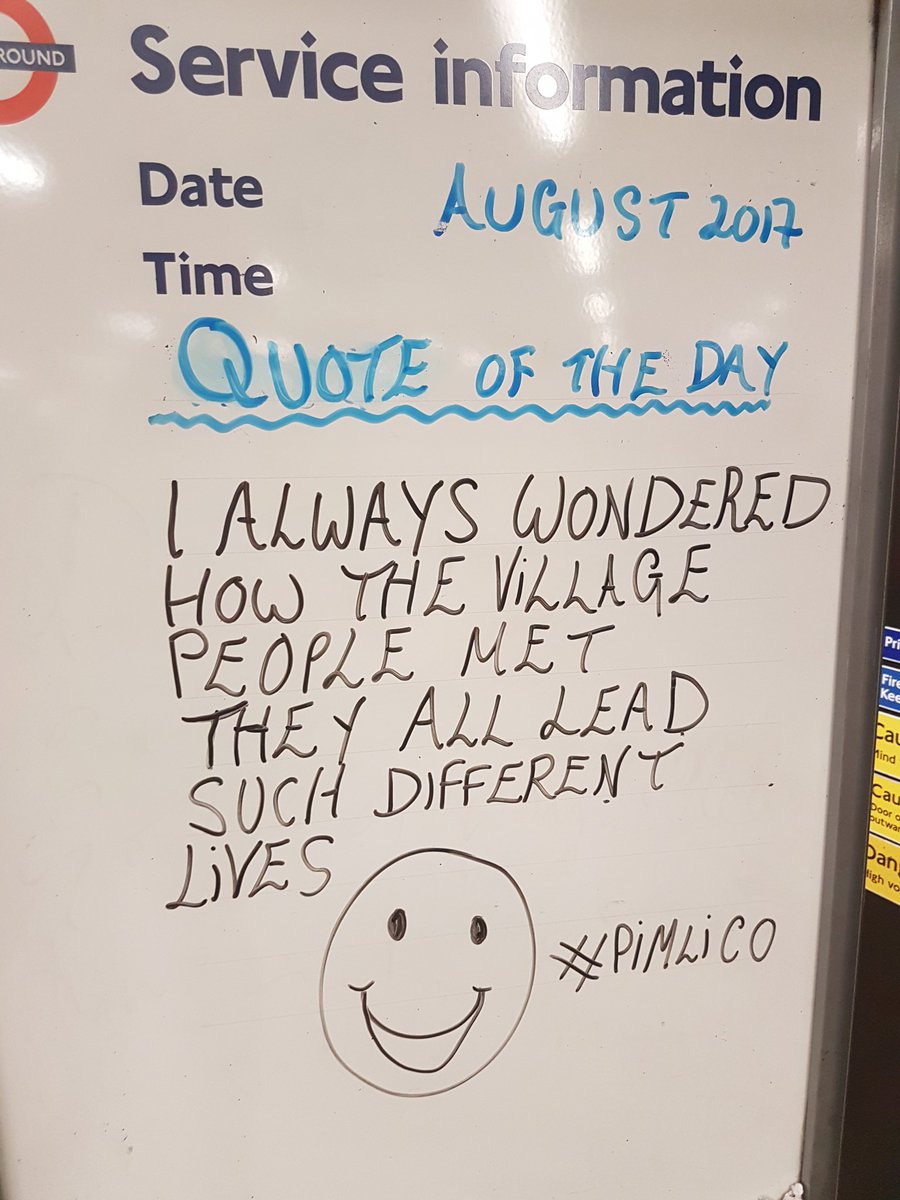 ROUND
Service information
Date AUGUST 2017
Time
QUOTE OF THE DAY
I ALWAYS WONDERED
HOW THE ViLLAGE
PEOPLE MET
THEY ALL LEAD
SUCH DIFFERENT
LiVES
#PiMLiCO
Pri
Fire
Kee
Cau
Mind
Cau
Door o
outwa
Dang
High vo